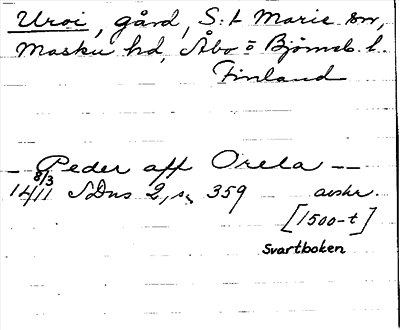 Uroi, gård, S:t Marie sn,
Masku hd, Åbo o Björneb. l.
Finland
– Peder aff Orela – –
8/3
1411 SDns 2, s. 359 avskr.
[1500-t]
Svartboken